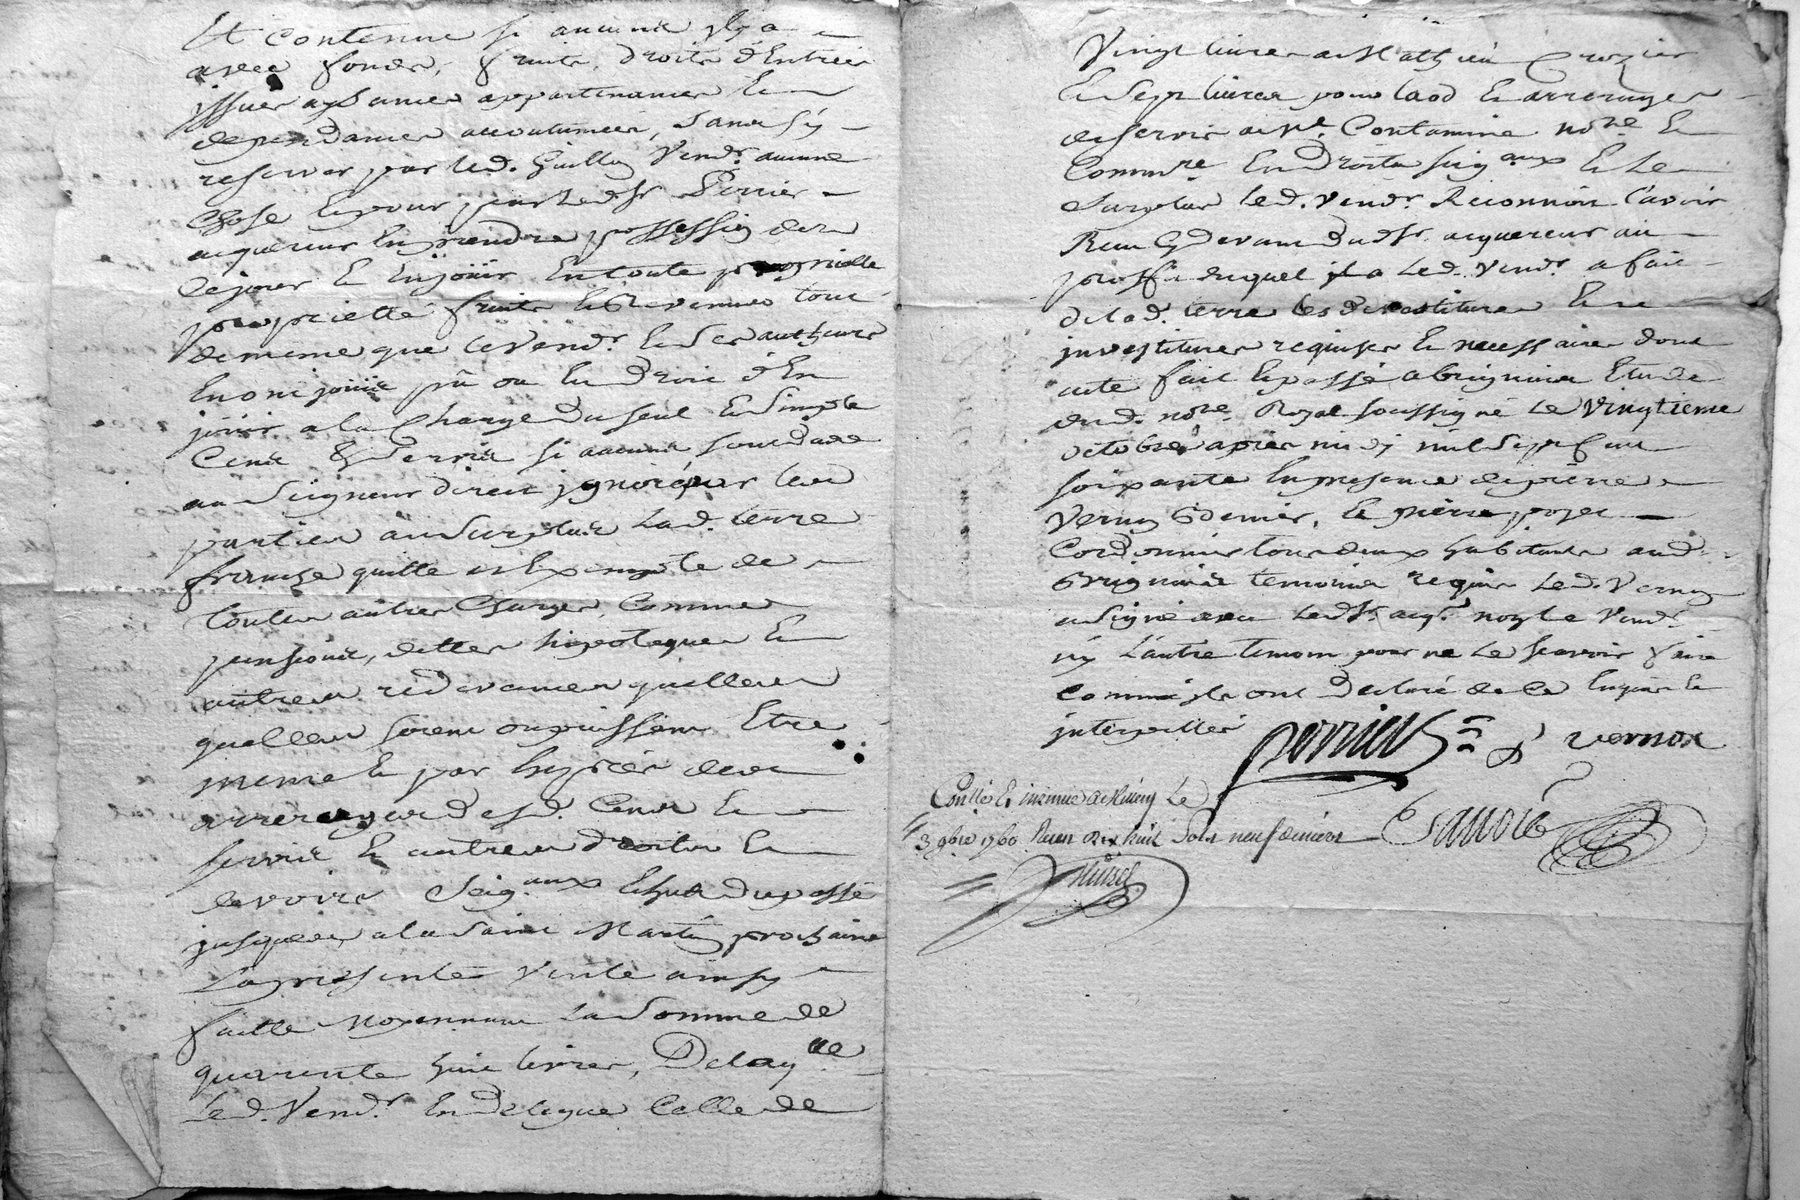 Et contenue si aucune yl y a
avec fonds, fruits, droits d'Entrées
issues aysances appartenances Et
dependances accoutumées, sans s'y
reserver par led. Guillon Vend.r aucune
chose Et pour par led. Sr Perrier
acquereur En prendre possession des
ce jour Et En jouir En toute proprietté
proprietté fruits Et Revenues tout
de meme que le Vend.r Et ses autheurs
En ont jouit pû ou Eu droit d'En
jouir a la Charge du seul Et simple
Cens & servis si aucuns sont dubs
au seigneur direct ignoré par les
parties au surplus lad. terre
franche quitte et Exempte de
toutes autres Charges, comme
pensions, dettes hipoteques Et
autres redevances quelles
quelles soient ou puissent Etre
meme Et par Exprés des
arrerages desd. Cens Et
servis Et autres droits Et
devoirs Seig.aux Echus du passé
jusques a la Saint Martin prochaine
La presente Vente ainsy
faitte moyennant La somme de
quarente huit livres, De laq.lle
Led. Vend.r En delegue Celle de
Vingt livres a Mathieu Crozier
Et sept livres pour laod Et arrerages
de servis a Me. Contamine no.re Et
Comm.re En droits seig.aux Et le
surplus led. Vend.r Reconnoit l'avoir
Reçu Cy devant dud. Sr. acquereur au
proffit duquel yl a led. Vend.r a fait
de lad. terre les devestitures Et
investitures requises Et necessaires dont
acte fait Et passé a brignais Etude
dud. no.re Royal soussigné Le Vingtieme
octobre apres midy mil sept cent
soixante En presence de pierre
Vernay, Et pierre poyet
Cordonnier tous deux habitants aud.
Brignais temoins requis Led. Vernay
a signé avec led. Sr. acq.r non le Vend.r
ny L'autre temoin pour ne le scavoir faire
comme yls ont declaré de ce Enquis Et
interpellés
perrier
vernay
Conllé Et insinué a Millery Le
3 9bre 1760 Reçu dix huit sols neuf deniers